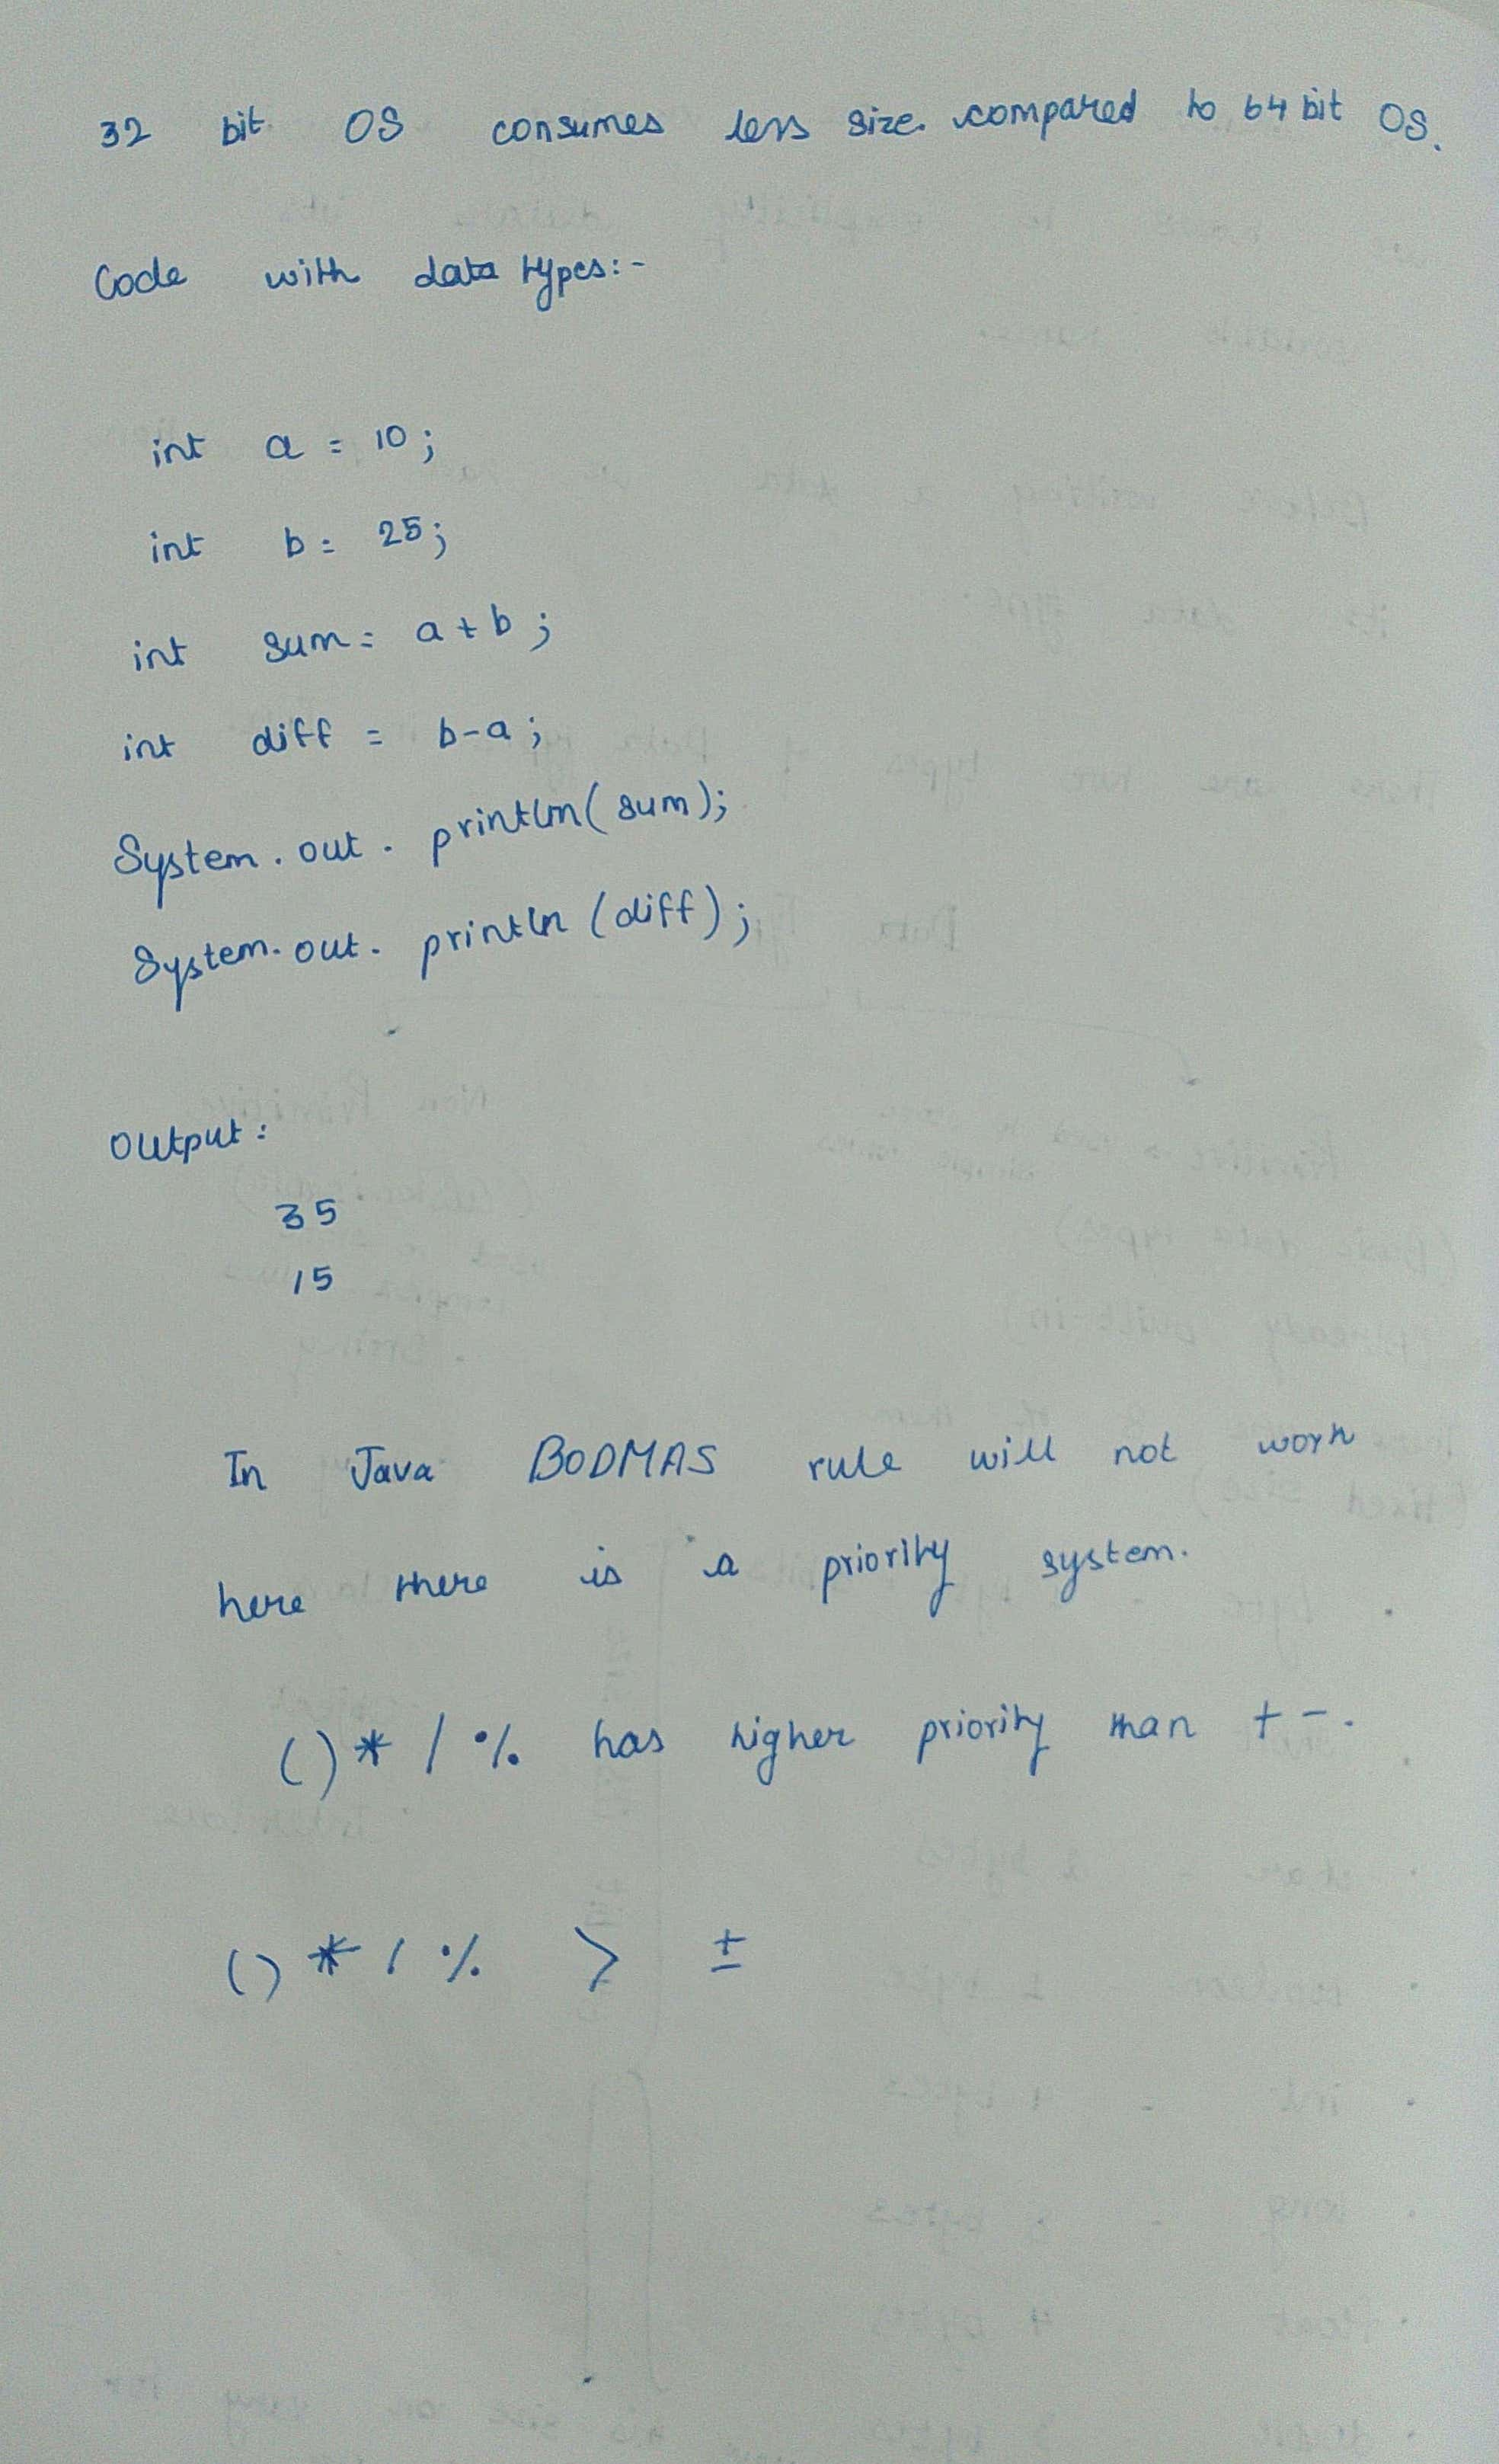 32 bit OS consumes less size. compared to 64 bit OS.
Code with data types:-
int a = 10;
int b = 25;
int sum = a+b;
int diff = b-a;
System.out.println(sum);
System.out.println(diff);
Output:
35
15
In Java BODMAS rule will not work
here there is a priority system.
()* / % has higher priority than + -.
()* / % > ±